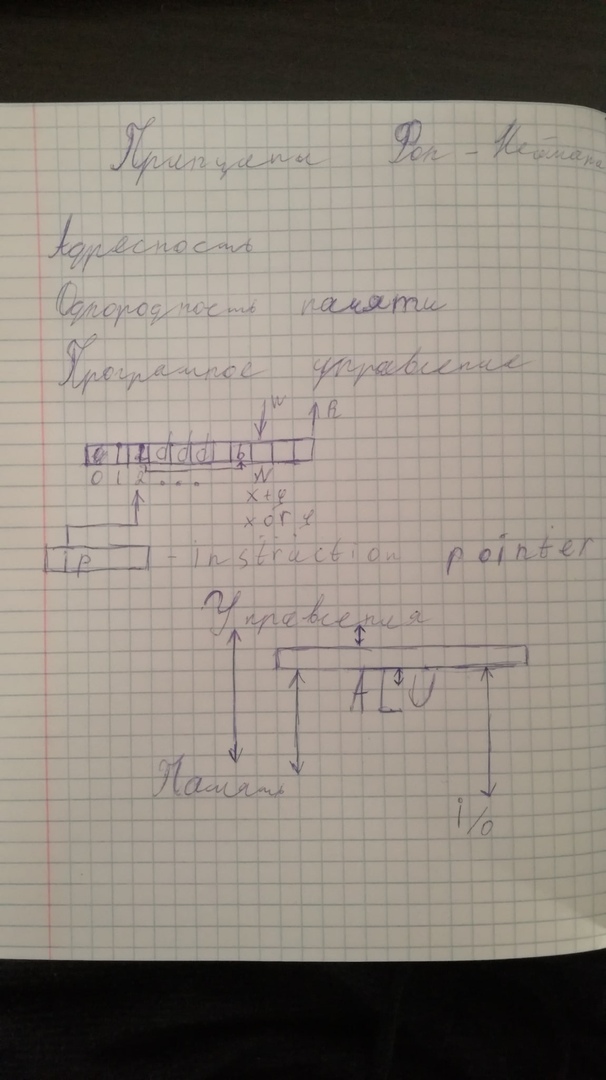 Принципы Фон-Неймана
Адресность
Однородность памяти
Програмное управление
W R
d d d b
0 1 2 ... N
x+y
xor y
ip - instruction pointer
Управления
ALU
Память
i/o